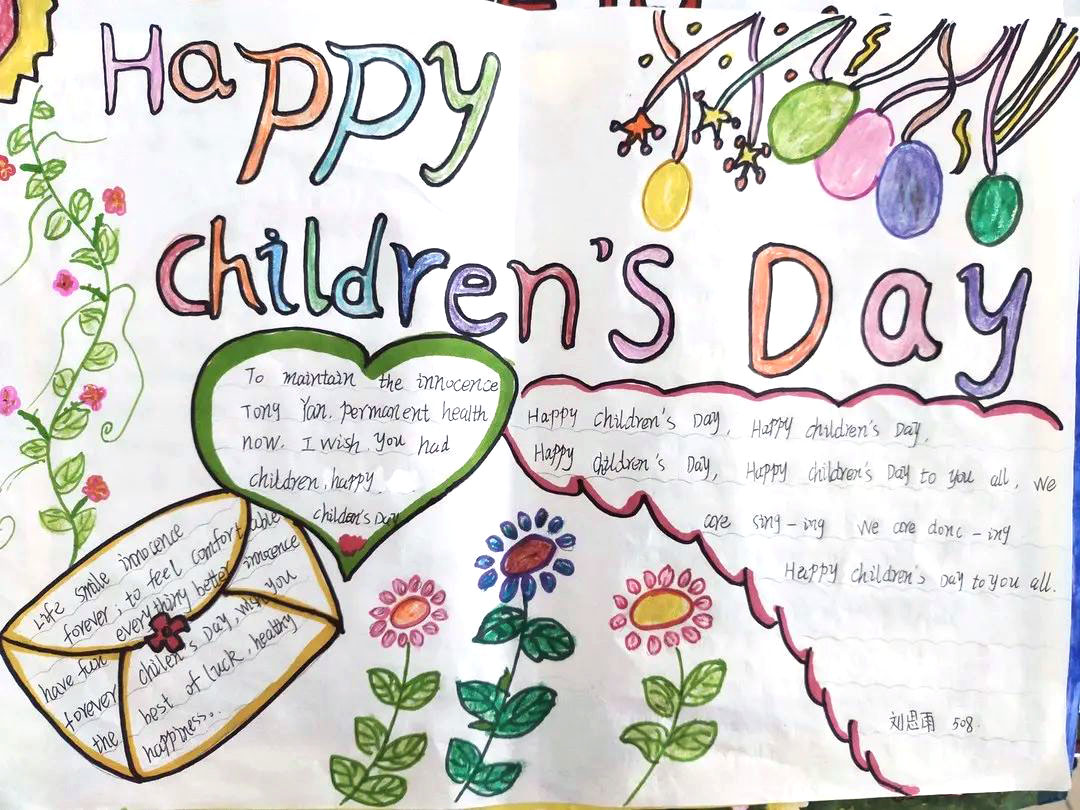 Happy
children's Day
To maintain the innocence
Tony Yan. permanent health
now. I wish you had
children, happy
children's Day
Happy children's Day, Happy children's Day,
Happy children's Day, Happy children's Day to you all, We
are sing-ing We are danc-ing
Happy children's Day to you all.
Life smile innocence
forever; to feel comfortable
everything better innocence
have fun
forever
the
chilen's day, wish you
best of luck, healthy
happiness.
刘思雨 508.